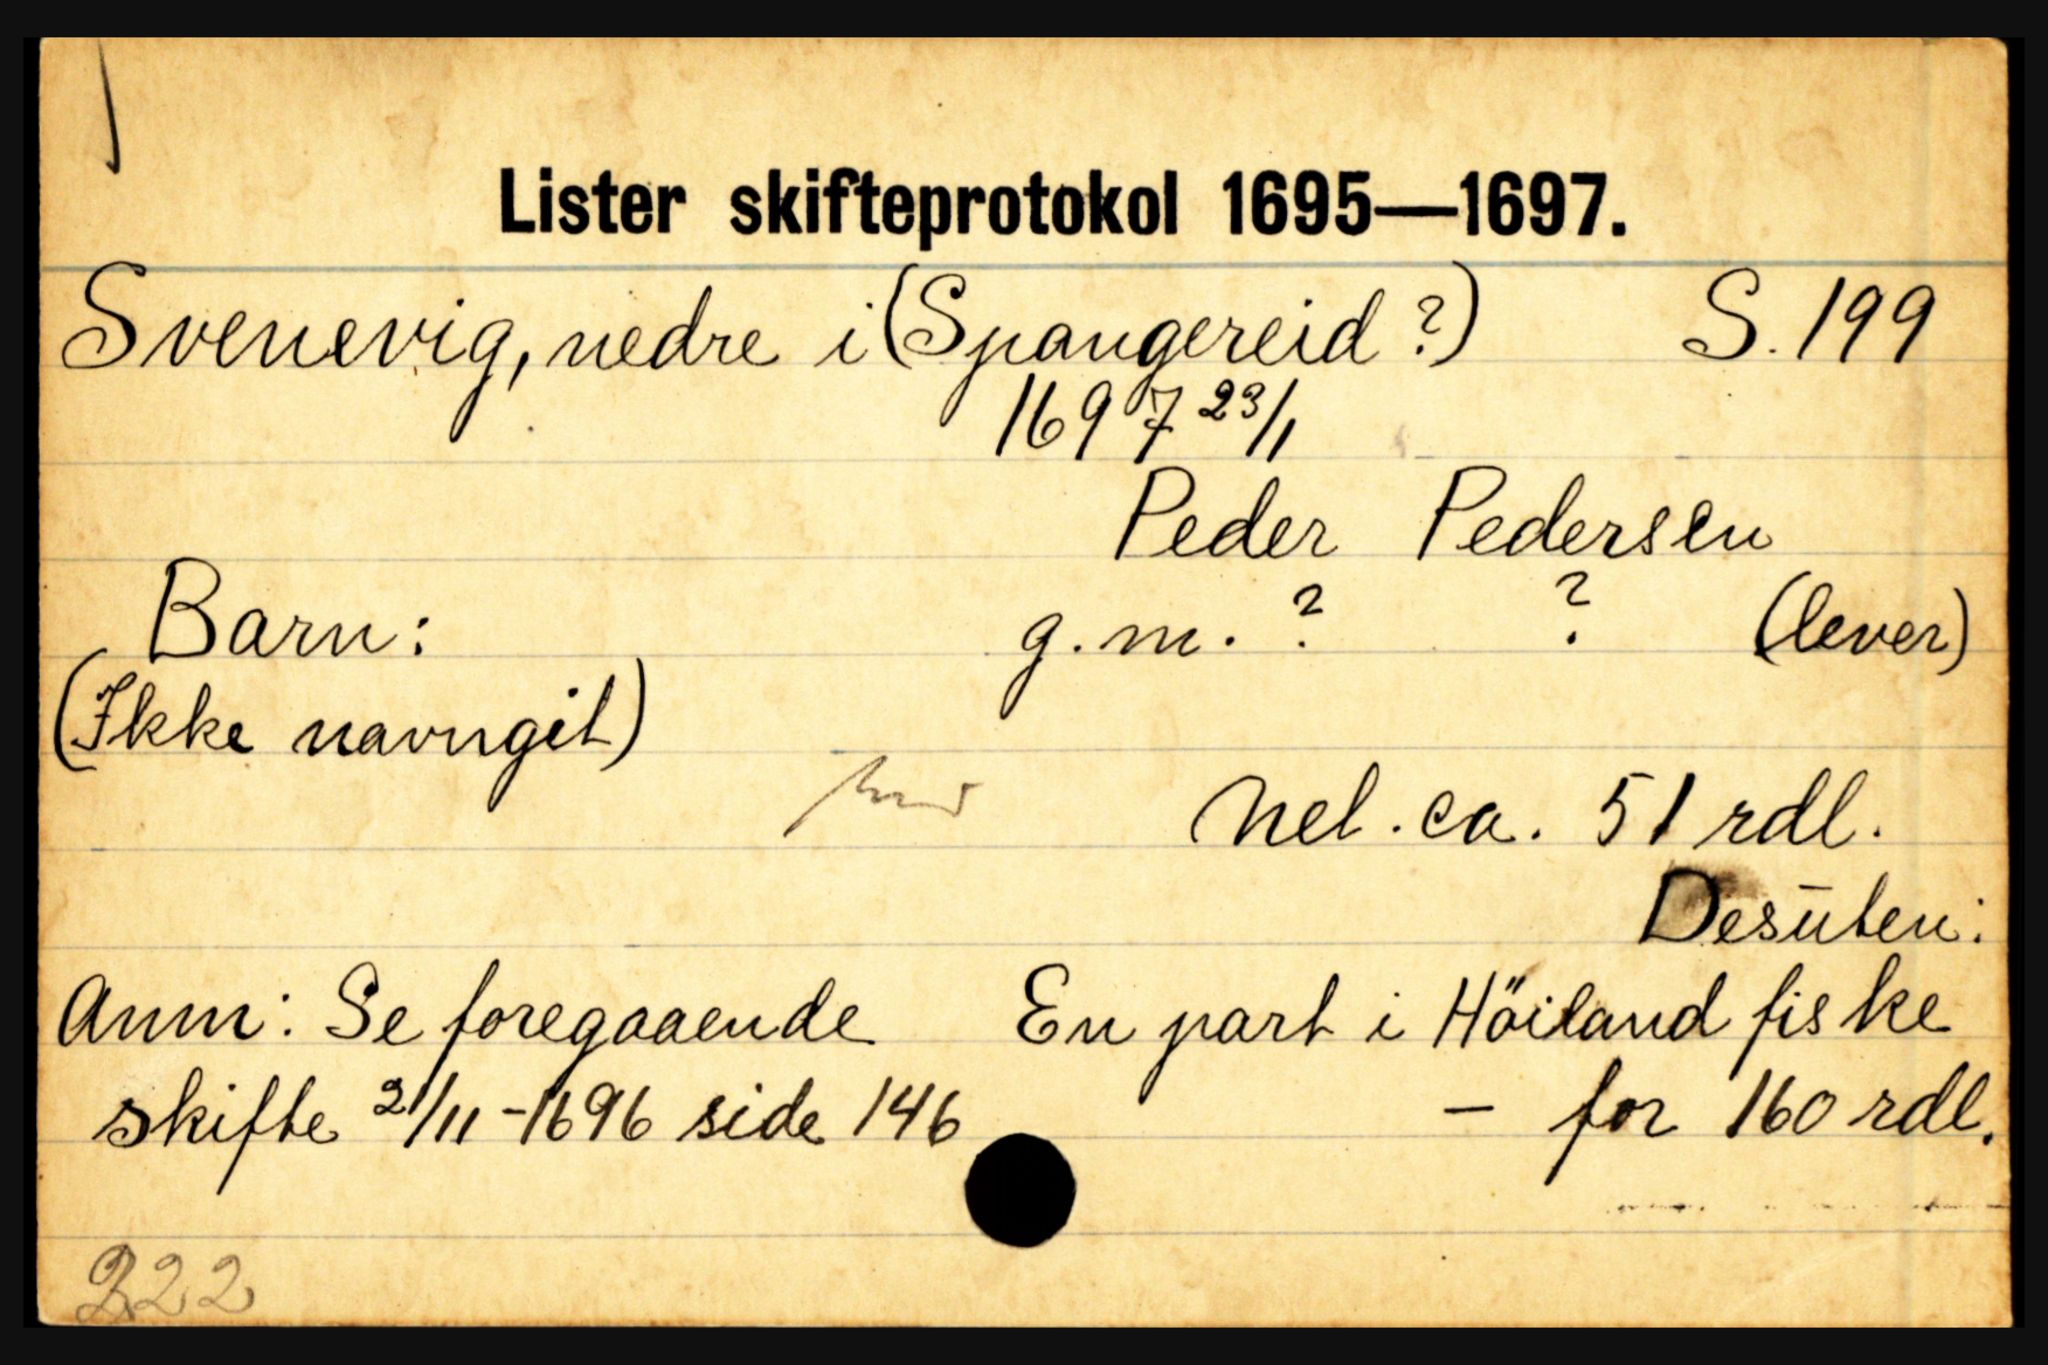 Lister skifteprotokol 1695—1697.
Svenevig, nedre i (Spangereid ?) S. 199
1697 23/1
Peder Pedersen
Barn: g.m. ? ? (lever)
(Ikke navngit)
Nel. ca. 51 rdl.
Desūten:
Anm: Se foregaaende En part i Höiland fiske
skifte 21/11-1696 side 146 — for 160 rdl.
222